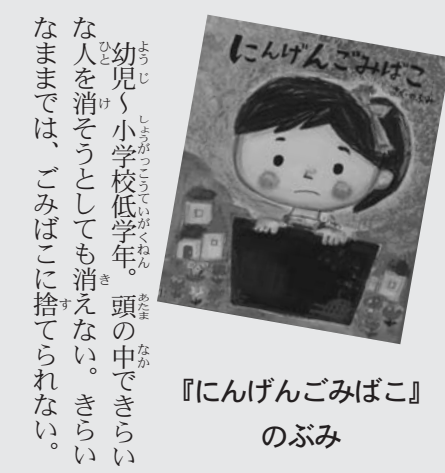 にんげんごみばこ
さく・のぶみ
『にんげんごみばこ』
のぶみ
幼児〜小学校低学年。頭の中できらい
な人を消そうとしても消えない。きらい
なままでは、ごみばこに捨てられない。